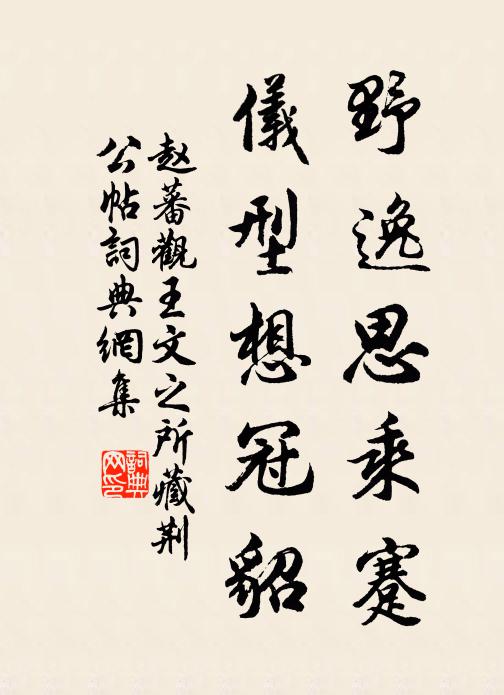 野逸思乘蹇
儀型想冠貂
赵蕃觀王文之所藏荆
公帖詞典網集
詞典
网印